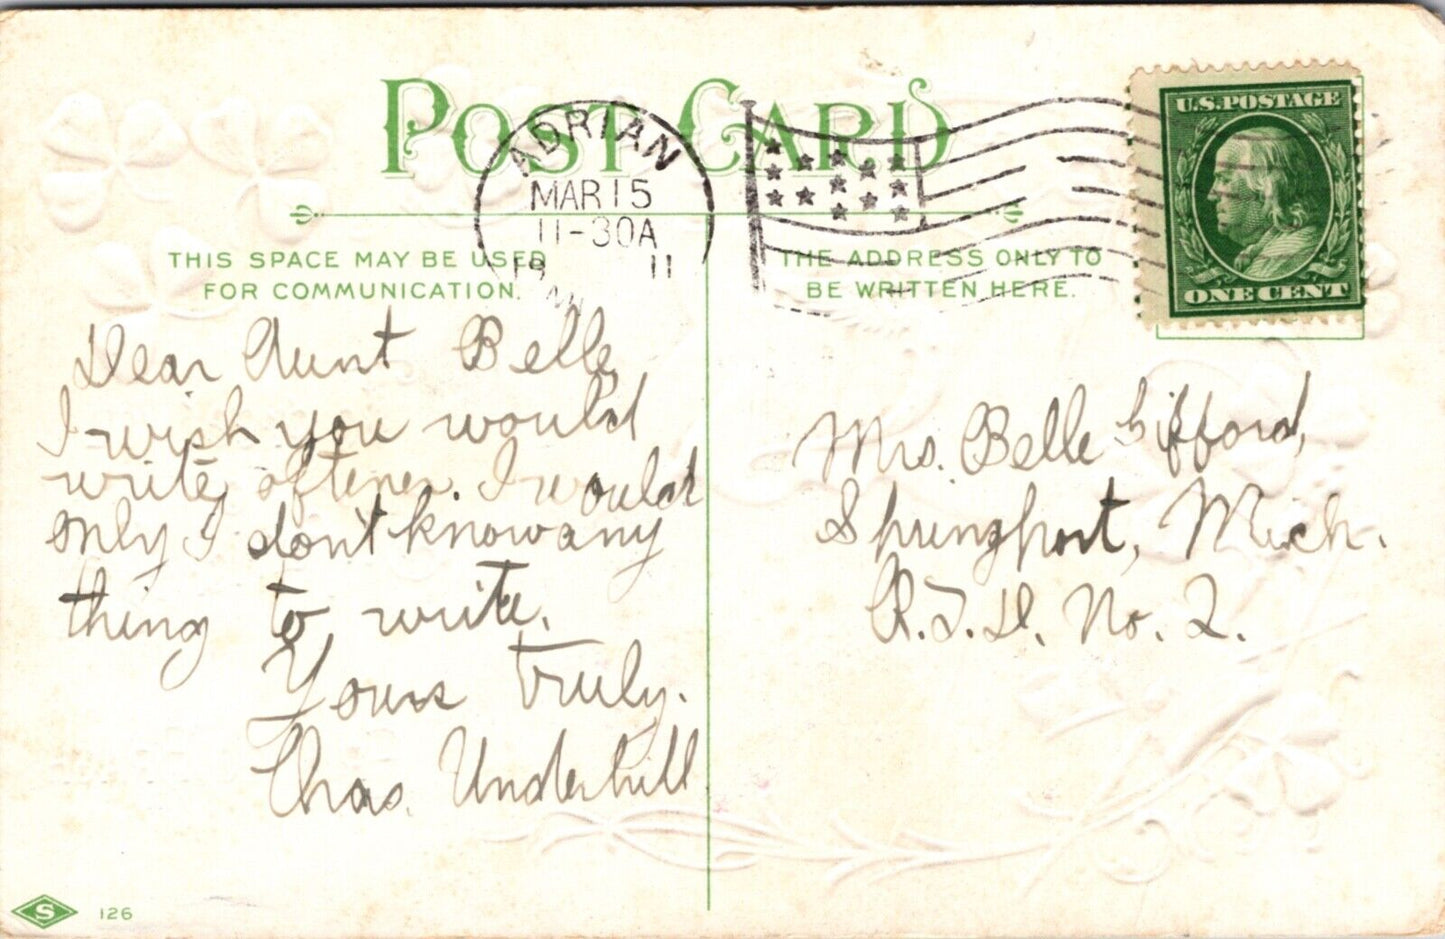 POST CARD
ADRIAN
MAR 15
11-30A
19 11
U.S. POSTAGE
ONE CENT
THIS SPACE MAY BE USED
FOR COMMUNICATION.
THE ADDRESS ONLY TO
BE WRITTEN HERE.
Dear Aunt Belle
I wish you would
write oftener. I would
only I don't know any
thing to write.
Yours truly.
Chas. Underhill
Mrs. Belle Gifford,
Springport, Mich.
R.F.D. No. 2.
S 126